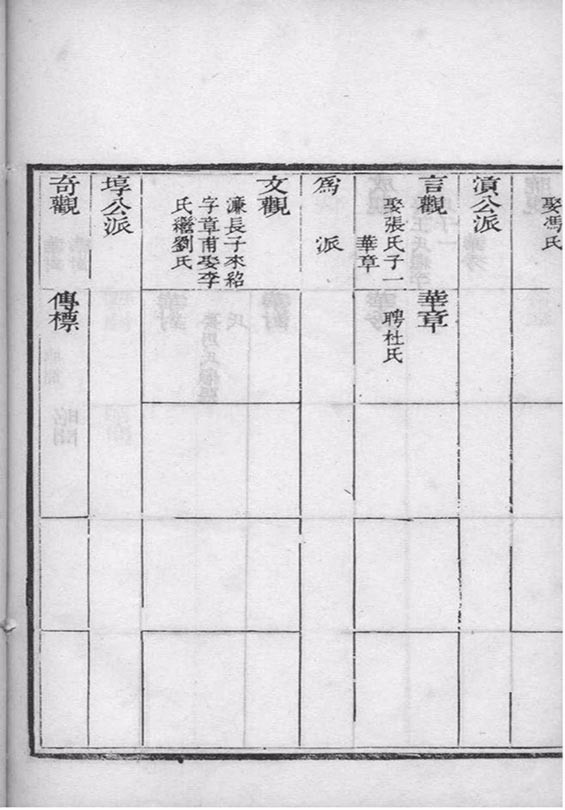 娶馮氏
濆公派
言觀
娶張氏子一
華章
華章
聘杜氏
為派
文觀
濂長子來紹
字章甫娶李
氏繼劉氏
埻公派
奇觀
傳標